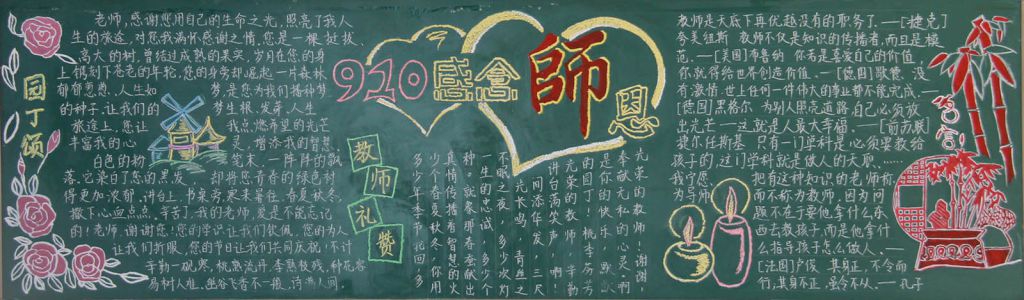 园丁颂
老师,感谢您用自己的生命之光,照亮了我人
生的旅途,对您我满怀感谢之情,您是一棵挺拔、
高大的树,曾结过成熟的果实,岁月在您的身
上镌刻下苍老的年轮,您的身旁却崛起一片森林
郁郁葱葱,人生如梦,是您为我们播种梦
的种子,让我们的梦生根,发芽,人生
旅途上,您让我点燃希望的光芒
丰富我的心灵,增添我的智慧
白色的粉笔末,一阵阵的飘
落,它染白了您的黑发,却将您青春的绿色衬
得更加浓郁,讲台上,书桌旁,寒来暑往,春夏秋冬,
撒下心血点点,辛苦了,我的老师,爱是不能忘记
的!老师,谢谢您!您的学识让我们钦佩,您的为人
让我们折服,您的节日让我们共同庆祝,不计
辛勤一砚寒,桃熟流丹,李熟枝残,种花容
易树人难,幽谷飞香不一般,诗满人间
910感念師恩
教师礼赞
光荣的教师!谢谢,
奉献无私的心灵,啊,
是你的快乐,
的园丁!桃李芬芳
光荣的教师,辛勤
讲台满笑声,啊!
间添华发,三尺
光长鸣,青丝之
不眠之夜,多少次灯
一生的忠诚,多少个
种,就春那春蚕献出
真情传播着智慧的火
少个春夏秋冬,你用
多少年季节轮回,多
教师是太阳底下再优越没有的职务了.—[捷克]
夸美纽斯 教师不仅是知识的传播者,而且是模
范.—[美国]布鲁纳 你若是喜爱自己的价值,
你就得给世界创造价值.—[德国]歌德 没
有激情,世上任何一件伟大的事业都不能完成.—
[德国]黑格尔 为别人照亮道路,自己必须放
出光芒—这就是人最大幸福.—[前苏联]
捷尔任斯基 只有一门学科是必须要教给
孩子的,这门学科就是做人的天职……
我宁愿把有这种知识的老师称
为导师而不称为教师,因为问
题不在于要他拿什么东
西去教孩子,而是他拿什
么指导孩子怎么做人.—
[法国]卢俊 其身正,不令而
行;其身不正,虽令不从.—孔子